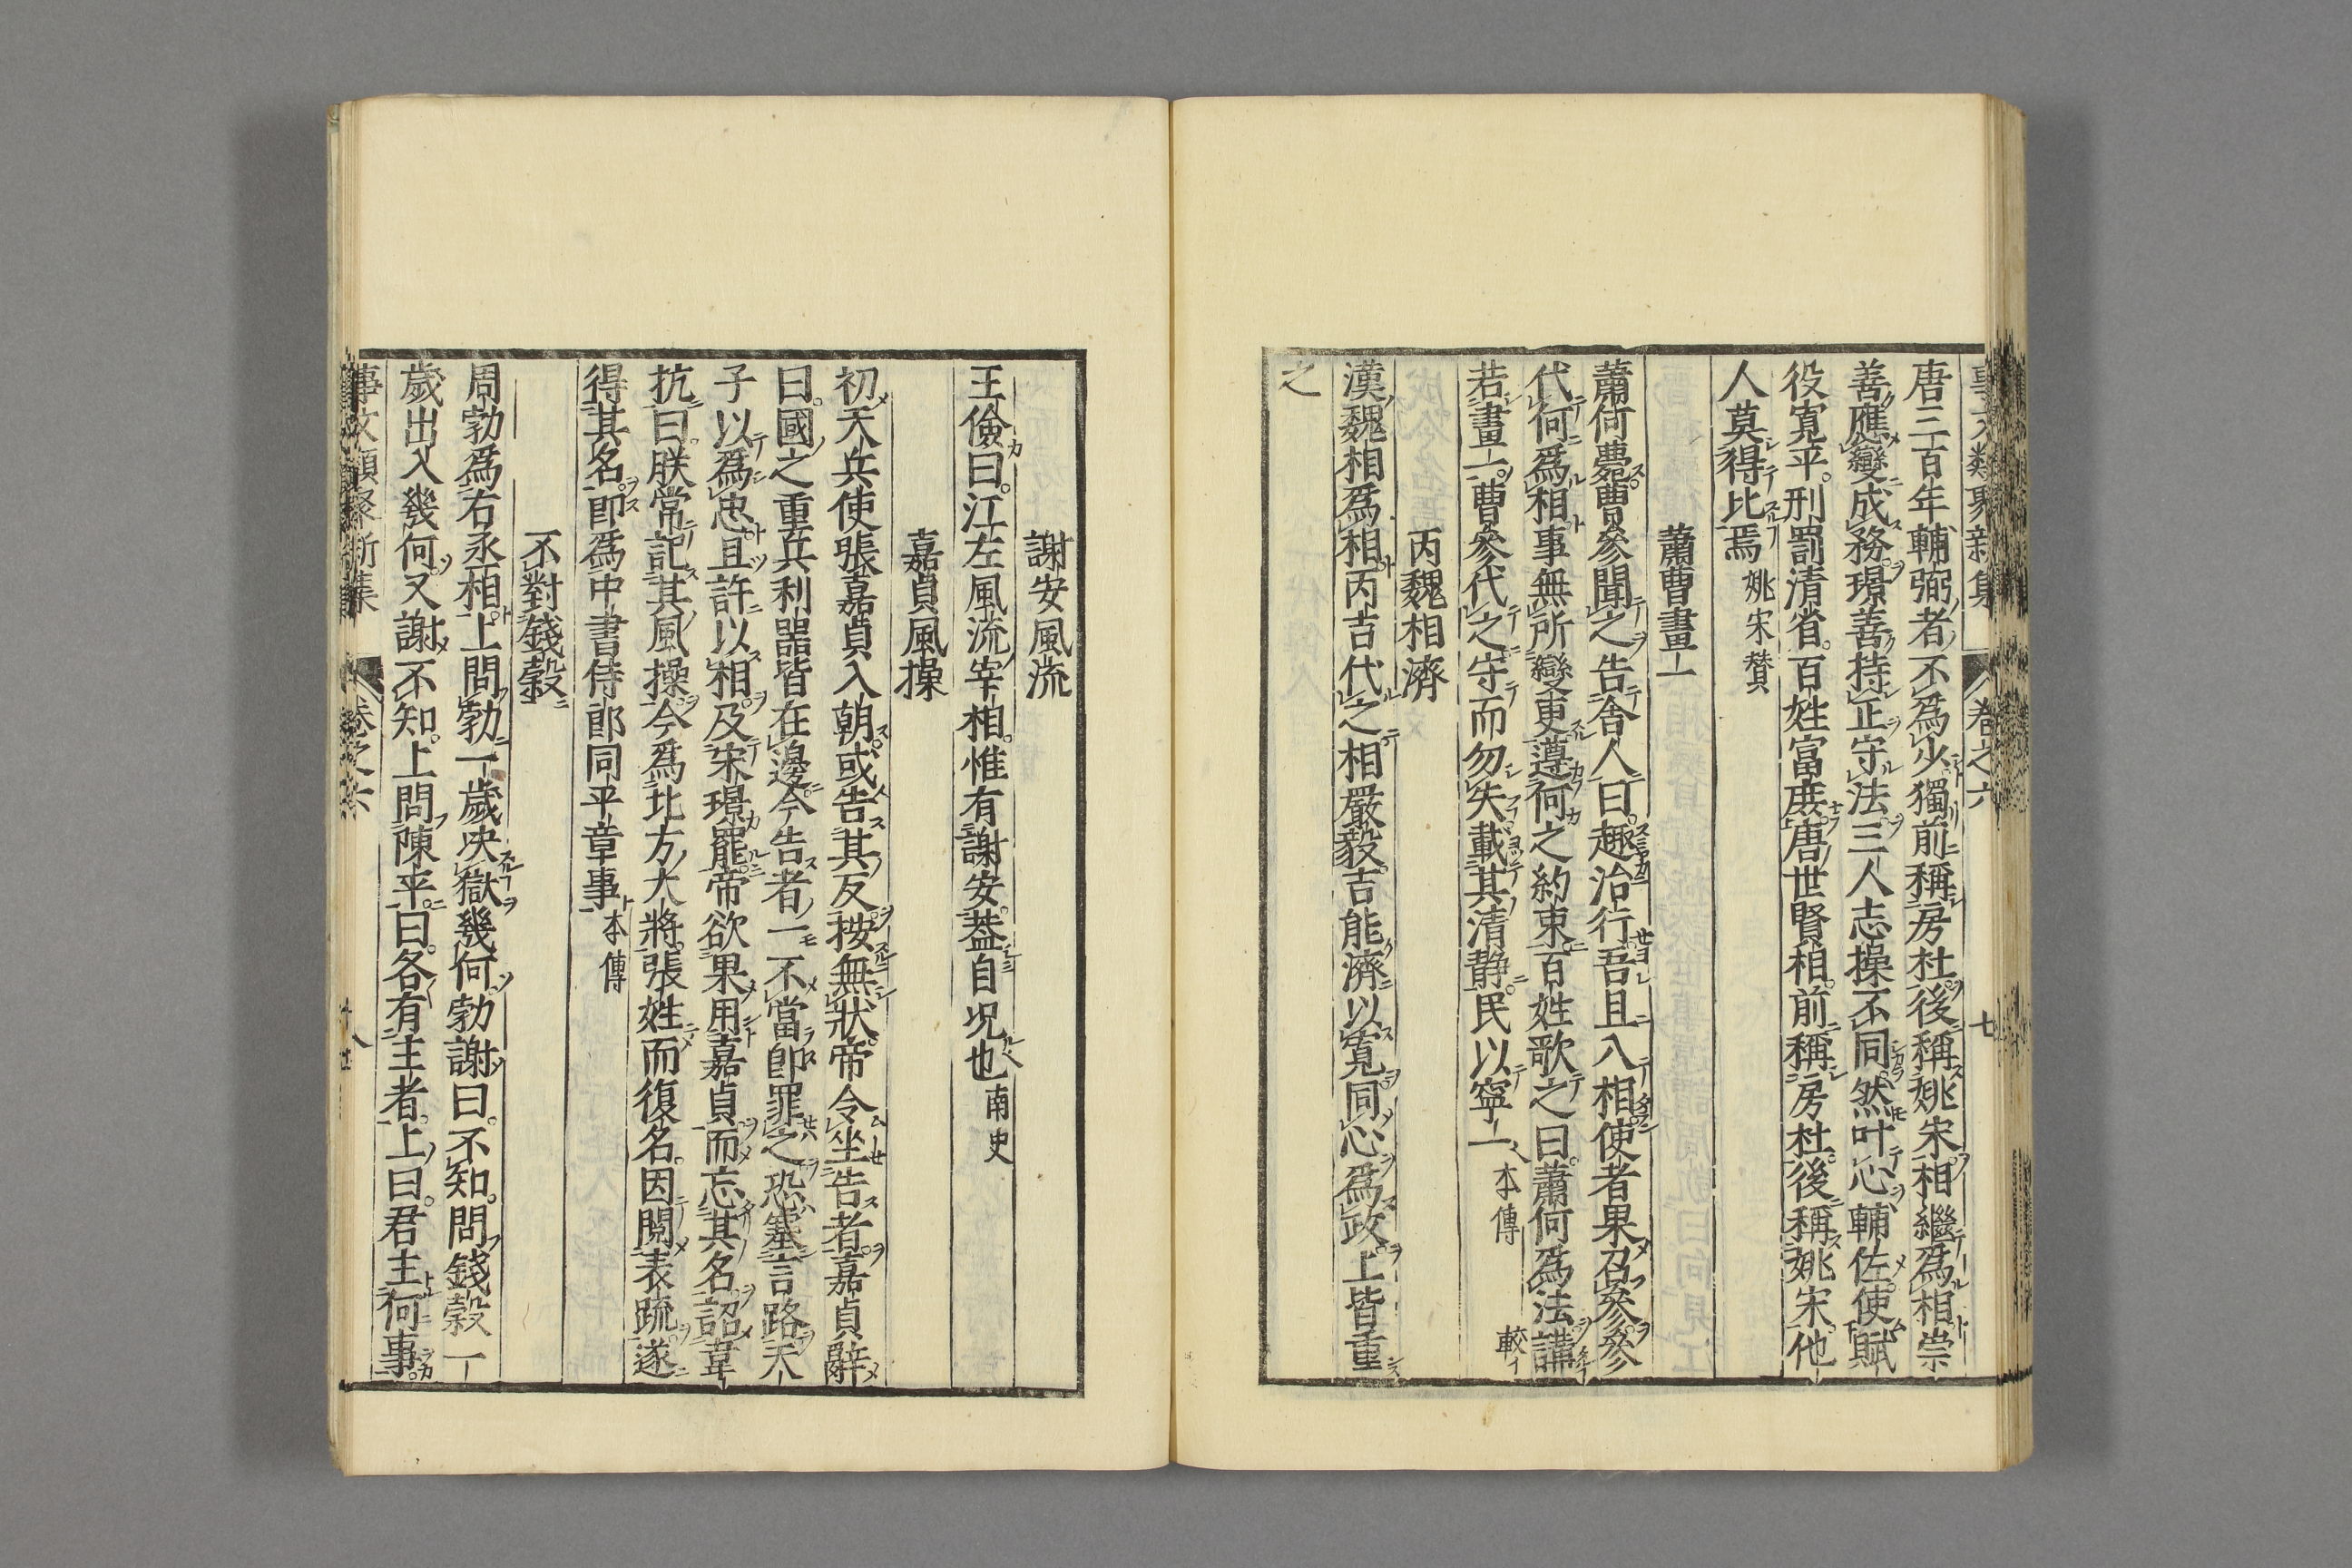 事文類聚新集 卷之六 七
唐三百年輔弼者不爲少獨前稱房杜後稱姚宋相繼爲相崇
善應變成務璟善持正守法三人志操不同然叶心輔佐使賦
役寬平刑罰清省百姓富庶唐世賢相前稱房杜後稱姚宋他
人莫得比焉 姚宋賛
蕭曹畫一
蕭何薨曹參聞之告舍人曰趣治行吾且入相使者果召參參
代何爲相事無所變更遵何之約束百姓歌之曰蕭何爲法講
若畫一曹參代之守而勿失載其清静民以寧一 本傳 較イ
丙魏相濟
漢魏相爲相丙吉代之相嚴毅吉能濟以寬同心爲政上皆重
之
謝安風流
王儉曰江左風流宰相惟有謝安葢自况也 南史
嘉貞風操
初天兵使張嘉貞入朝或告其反按無狀帝令坐告者嘉貞辭
曰國之重兵利器皆在邊今告者一不當卽罪之恐塞言路天
子以爲忠且許以相及宋璟罷帝欲果用嘉貞而忘其名詔韋
抗曰朕常記其風操今爲北方大將張姓而復名因閱表疏遂
得其名卽爲中書侍郎同平章事 本傳
不對錢穀
周勃爲右丞相上問勃一歲决獄幾何勃謝曰不知問錢穀一
歲出入幾何又謝不知上問陳平曰各有主者上曰君主何事
事文類聚新集 卷之六 八